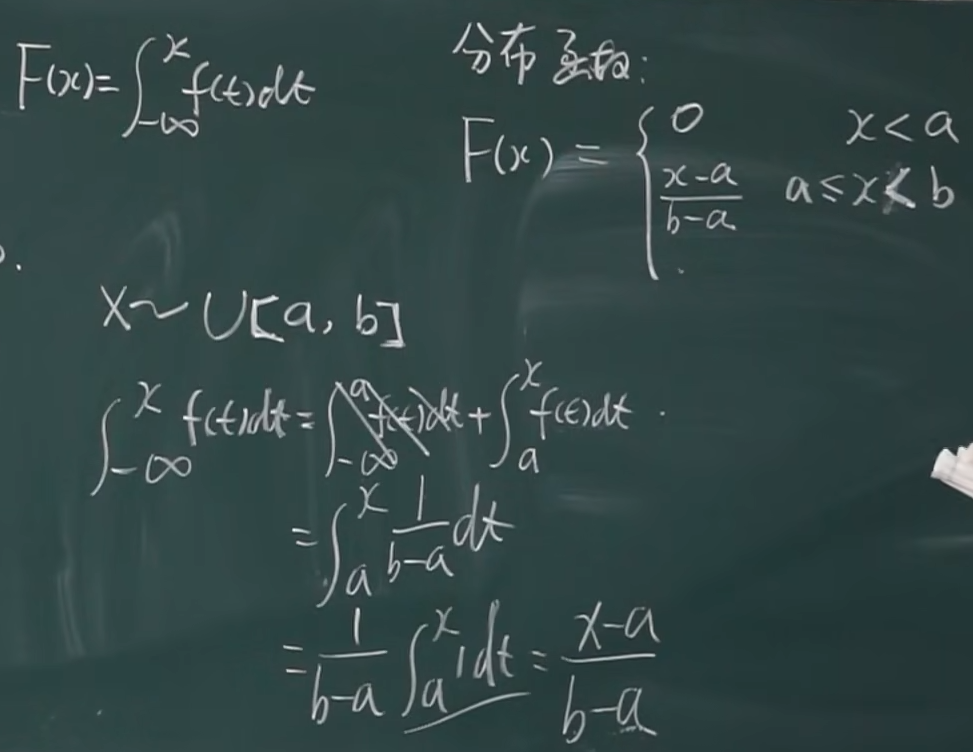 F(x)=∫_{-∞}^{x} f(t)dt
分布函数:
F(x) = { 0 x<a
\frac{x-a}{b-a} a≤x<b
.
X~U[a, b]
∫_{-∞}^{x} f(t)dt = ∫_{-∞}^{a} f(t)dt + ∫_{a}^{x} f(t)dt .
= ∫_{a}^{x} \frac{1}{b-a} dt
= \frac{1}{b-a} ∫_{a}^{x} 1dt = \frac{x-a}{b-a}